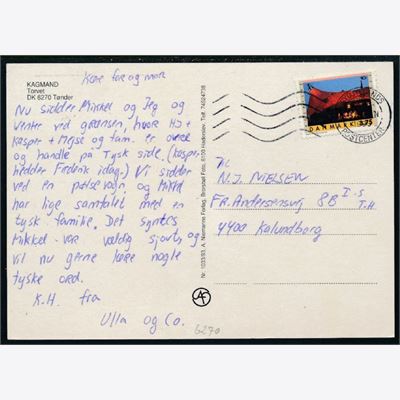 KAGMAND
Torvet
DK 6270 Tønder
Kære far og mor
Nu sidder Mikkel og Jeg og
venter ved grænsen, hvor HJ +
Kasper + Majse og fam. er ovre
og handle på Tysk side. (Kasper
hedder Frederik idag.) Vi sidder
ved en pølsevogn, og Mikkel
har lige samtalet med en
tysk familie. Det syntes
Mikkel var vældig sjovt, og
vil nu gerne lære nogle
tyske ord.
K.H. fra
Ulla og Co.
6270
Nr. 1033/93, A. Niemanns Forlag, Brorsbøl Foto, 6100 Haderslev. Telf. 74524738
DANMARK 3.75
POSTCENTER
Til
N.J. NIELSEN
FR. Andersensvej 8B I.S
T.H
4400 Kalundborg